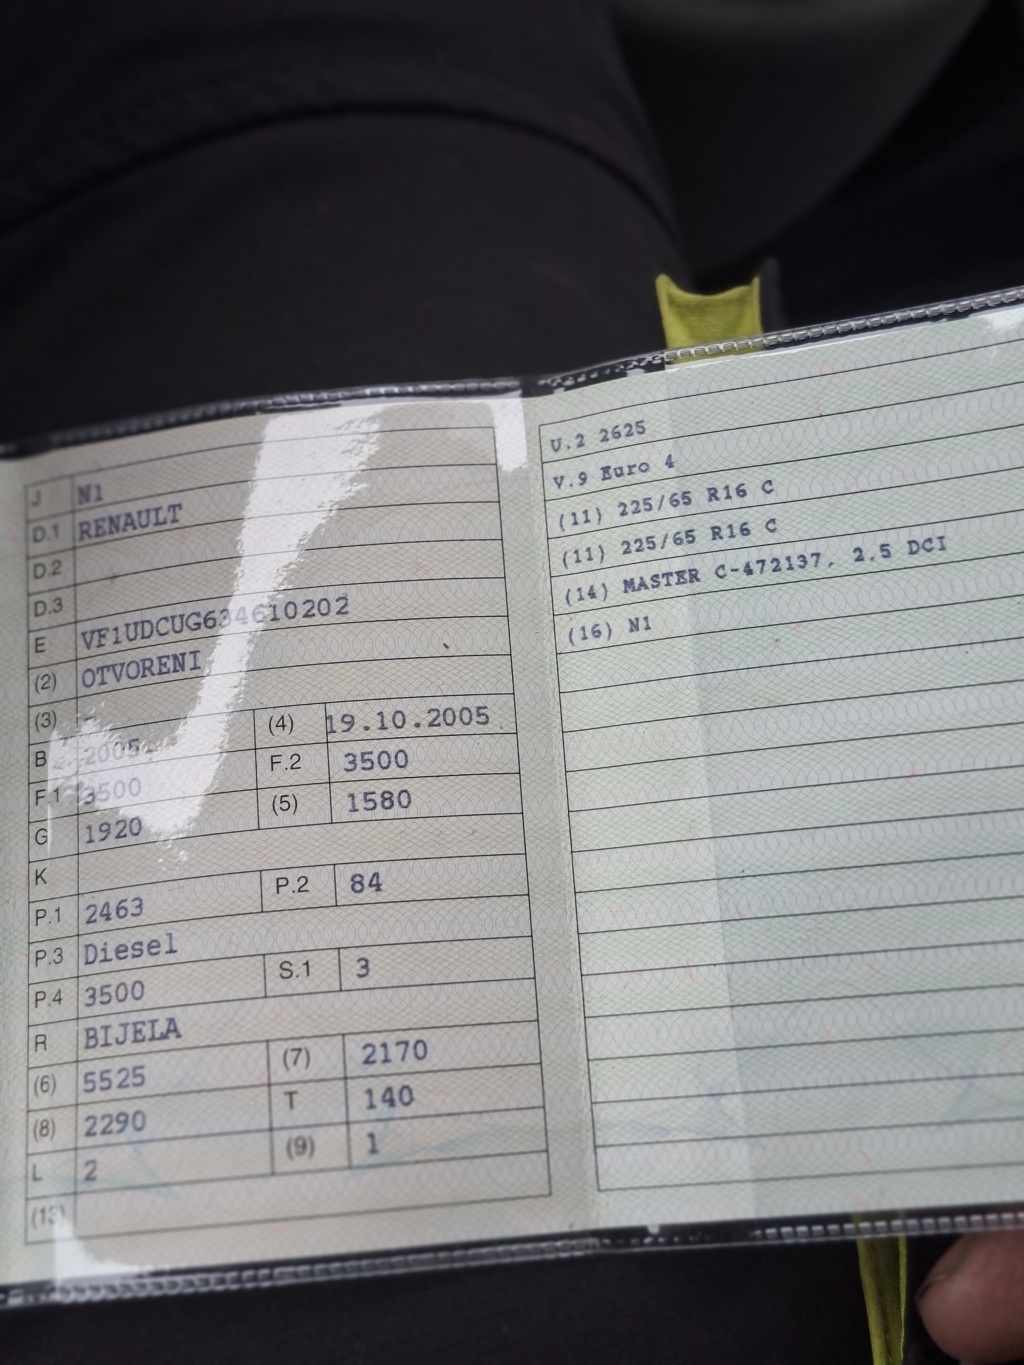 J N1
D.1 RENAULT
D.2
D.3
E VF1UDCUG634610202
(2) OTVORENI
(3) (4) 19.10.2005
B 2005 F.2 3500
F.1 3500 (5) 1580
G 1920
K
P.1 2463 P.2 84
P.3 Diesel
P.4 3500 S.1 3
R BIJELA
(6) 5525 (7) 2170
(8) 2290 T 140
L 2 (9) 1
(13)
U.2 2625
V.9 Euro 4
(11) 225/65 R16 C
(11) 225/65 R16 C
(14) MASTER C-472137, 2.5 DCI
(16) N1